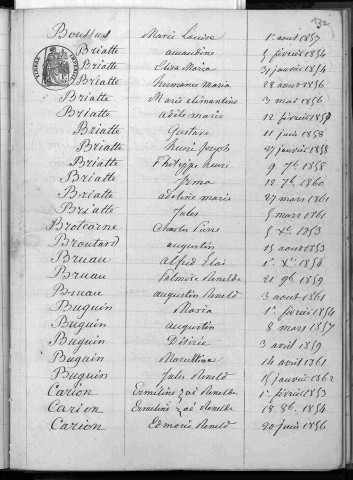 132
Boussus Marie Louise 1r aout 1857
Briatte amandine 5 février 1854
Briatte Elisa Maria 31 janvier 1854
Briatte humance maria 28 aout 1856
Briatte Marie clémantine 3 mai 1856
Briatte adèle marie 12 février 1859
Briatte Gustave 11 juin 1858
Briatte henri joseph 27 janvier 1858
Briatte Philippe henri 9 7e 1858
Briatte Irma 12 7e 1860
Briatte adeline marie 27 mars 1861
Briatte Jules 5 mars 1861
Brotcorne Charles Pierre 5 Xe 1853
Broutard augustin 15 aout 1853
Bruau alfred Eloi 1r Xe 1854
Bruau Palmire Renelde 21 9e 1859
Bruau augustin Reneld 3 aout 1861
Buguin Maria 1r février 1854
Buguin augustin 8 mars 1857
Buguin Désirée 3 avril 1859
Buguin 14 avril 1861
Buguin Jules Reneld 15 janvier 1862
Carion Ermeline zoé Renelde 1r février 1853
Carion Ermeline zoé Renelde 18 8e 1854
Carion Edmorie Reneld 20 juin 1856